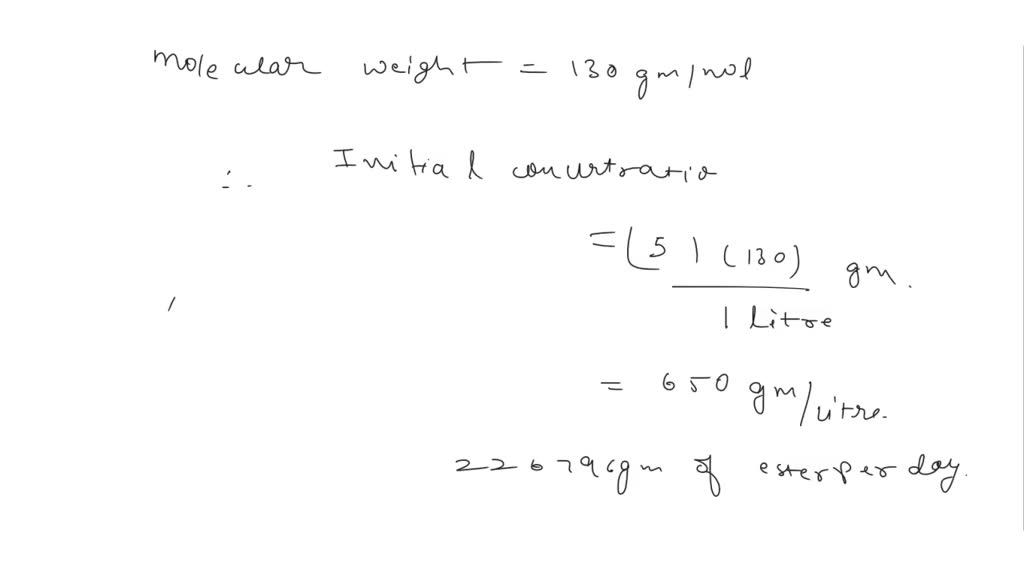 Molecular weight = 130 gm/mol
∴ Initial concentratio
= (5) (130) gm.
1 Litre
= 650 gm/litre.
226796gm of ester per day.